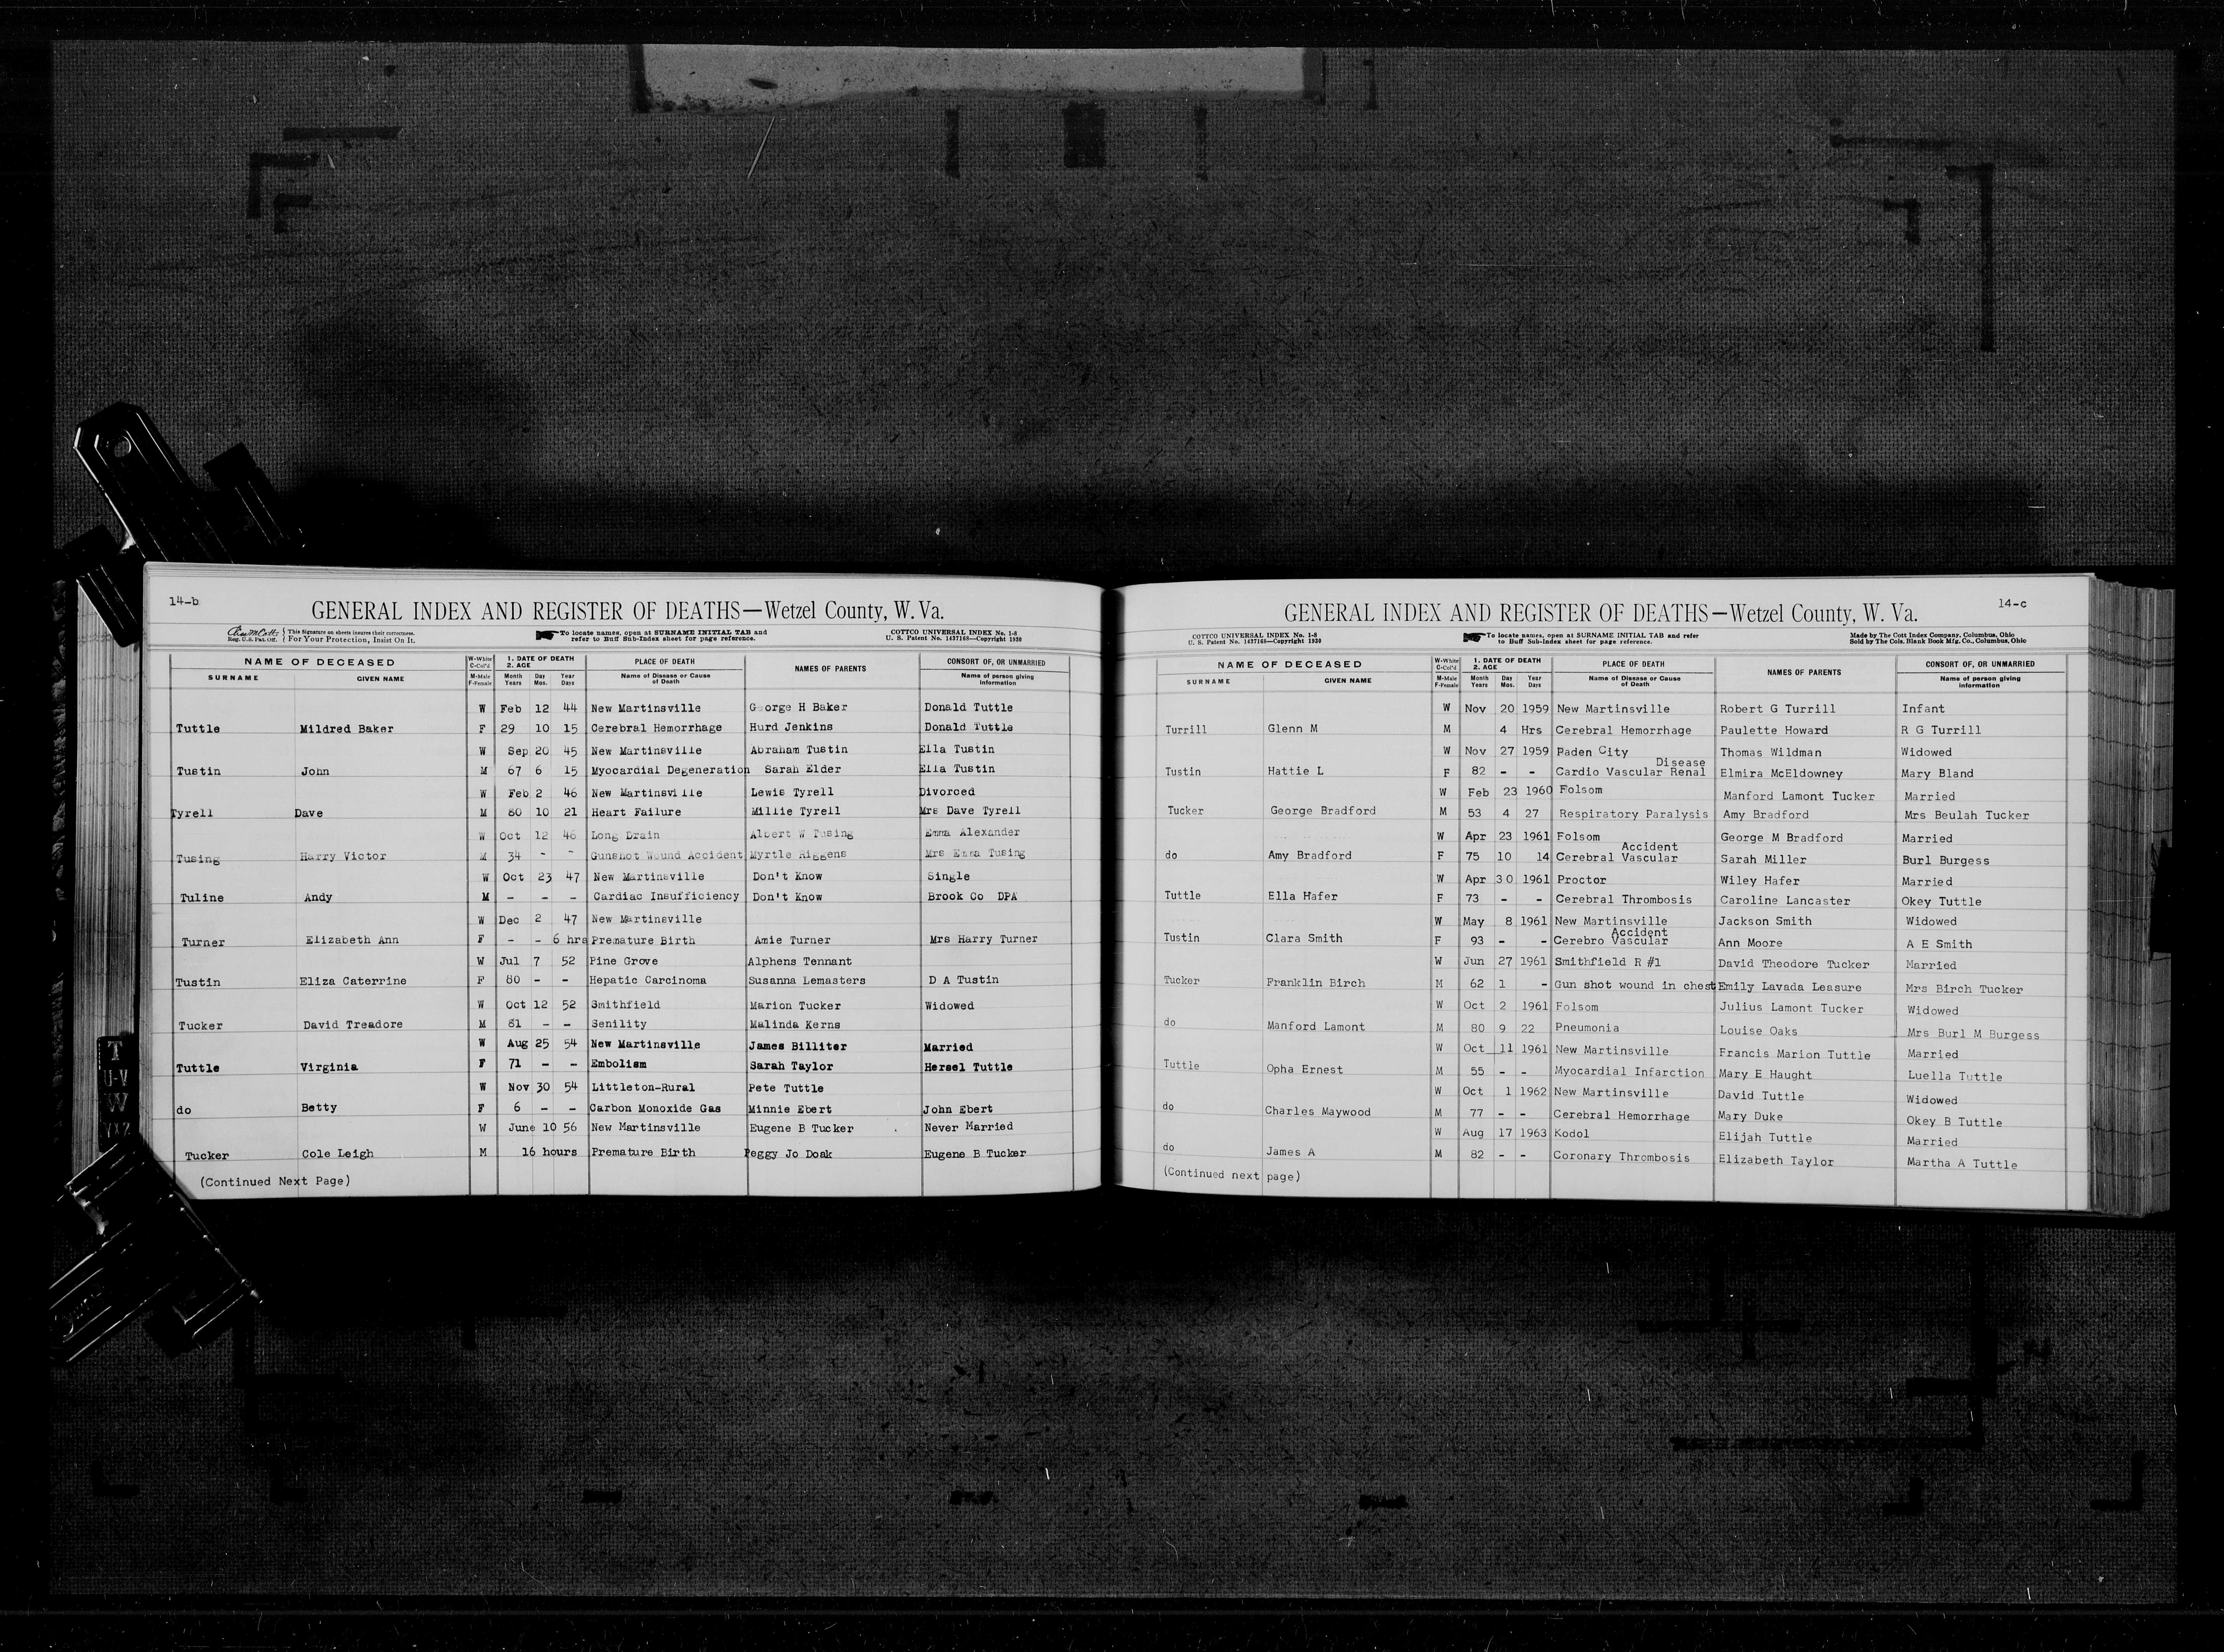 14-b
GENERAL INDEX AND REGISTER OF DEATHS—Wetzel County, W. Va.
Reg. U.S. Pat. Off. This Signature on sheets insures their correctness. For Your Protection, Insist On It.
To locate names, open at SURNAME INITIAL TAB and refer to Buff Sub-Index sheet for page reference.
COTTCO UNIVERSAL INDEX No. 1-8
U. S. Patent No. 1437168—Copyright 1930
NAME OF DECEASED W-White C-Col'd 1. DATE OF DEATH 2. AGE PLACE OF DEATH NAMES OF PARENTS CONSORT OF, OR UNMARRIED
SURNAME GIVEN NAME M-Male F-Female Month Years Day Mos. Year Days Name of Disease or Cause of Death Name of person giving information
W Feb 12 44 New Martinsville George H Baker Donald Tuttle
Tuttle Mildred Baker F 29 10 15 Cerebral Hemorrhage Hurd Jenkins Donald Tuttle
W Sep 20 45 New Martinsville Abraham Tustin Ella Tustin
Tustin John M 67 6 15 Myocardial Degeneration Sarah Elder Ella Tustin
W Feb 2 46 New Martinsville Lewis Tyrell Divorced
Tyrell Dave M 80 10 21 Heart Failure Millie Tyrell Mrs Dave Tyrell
W Oct 12 46 Long Drain Albert W Tusing Emma Alexander
Tusing Harry Victor M 34 - - Gunshot Wound Accident Myrtle Riggens Mrs Emma Tusing
W Oct 23 47 New Martinsville Don't Know Single
Tuline Andy M - - - Cardiac Insufficiency Don't Know Brook Co DPA
W Dec 2 47 New Martinsville
Turner Elizabeth Ann F - - 6 hrs Premature Birth Amie Turner Mrs Harry Turner
W Jul 7 52 Pine Grove Alphens Tennant
Tustin Eliza Caterrine F 80 - - Hepatic Carcinoma Susanna Lemasters D A Tustin
W Oct 12 52 Smithfield Marion Tucker Widowed
Tucker David Treadore M 81 - - Senility Malinda Kerns
W Aug 25 54 New Martinsville James Billiter Married
Tuttle Virginia F 71 - - Embolism Sarah Taylor Hersel Tuttle
W Nov 30 54 Littleton-Rural Pete Tuttle
do Betty F 6 - - Carbon Monoxide Gas Minnie Ebert John Ebert
W June 10 56 New Martinsville Eugene B Tucker Never Married
Tucker Cole Leigh M 16 hours Premature Birth Peggy Jo Doak Eugene B Tucker
(Continued Next Page)
T
U-V
W
YXZ
14-c
GENERAL INDEX AND REGISTER OF DEATHS—Wetzel County, W. Va.
COTTCO UNIVERSAL INDEX No. 1-8
U. S. Patent No. 1437168—Copyright 1930
To locate names, open at SURNAME INITIAL TAB and refer to Buff Sub-Index sheet for page reference.
Made by The Cott Index Company, Columbus, Ohio
Sold by The Cols. Blank Book Mfg. Co., Columbus, Ohio
NAME OF DECEASED W-White C-Col'd 1. DATE OF DEATH 2. AGE PLACE OF DEATH NAMES OF PARENTS CONSORT OF, OR UNMARRIED
SURNAME GIVEN NAME M-Male F-Female Month Years Day Mos. Year Days Name of Disease or Cause of Death Name of person giving information
W Nov 20 1959 New Martinsville Robert G Turrill Infant
Turrill Glenn M M 4 Hrs Cerebral Hemorrhage Paulette Howard R G Turrill
W Nov 27 1959 Paden City Thomas Wildman Widowed
Disease
Tustin Hattie L F 82 - - Cardio Vascular Renal Elmira McEldowney Mary Bland
W Feb 23 1960 Folsom Manford Lamont Tucker Married
Tucker George Bradford M 53 4 27 Respiratory Paralysis Amy Bradford Mrs Beulah Tucker
W Apr 23 1961 Folsom George M Bradford Married
Accident
do Amy Bradford F 75 10 14 Cerebral Vascular Sarah Miller Burl Burgess
W Apr 30 1961 Proctor Wiley Hafer Married
Tuttle Ella Hafer F 73 - - Cerebral Thrombosis Caroline Lancaster Okey Tuttle
W May 8 1961 New Martinsville Jackson Smith Widowed
Accident
Tustin Clara Smith F 93 - - Cerebro Vascular Ann Moore A E Smith
W Jun 27 1961 Smithfield R #1 David Theodore Tucker Married
Tucker Franklin Birch M 62 1 - Gun shot wound in chest Emily Lavada Leasure Mrs Birch Tucker
W Oct 2 1961 Folsom Julius Lamont Tucker Widowed
do Manford Lamont M 80 9 22 Pneumonia Louise Oaks Mrs Burl M Burgess
W Oct 11 1961 New Martinsville Francis Marion Tuttle Married
Tuttle Opha Ernest M 55 - - Myocardial Infarction Mary E Haught Luella Tuttle
W Oct 1 1962 New Martinsville David Tuttle Widowed
do Charles Maywood M 77 - - Cerebral Hemorrhage Mary Duke Okey B Tuttle
W Aug 17 1963 Kodol Elijah Tuttle Married
do James A M 82 - - Coronary Thrombosis Elizabeth Taylor Martha A Tuttle
(Continued next page)